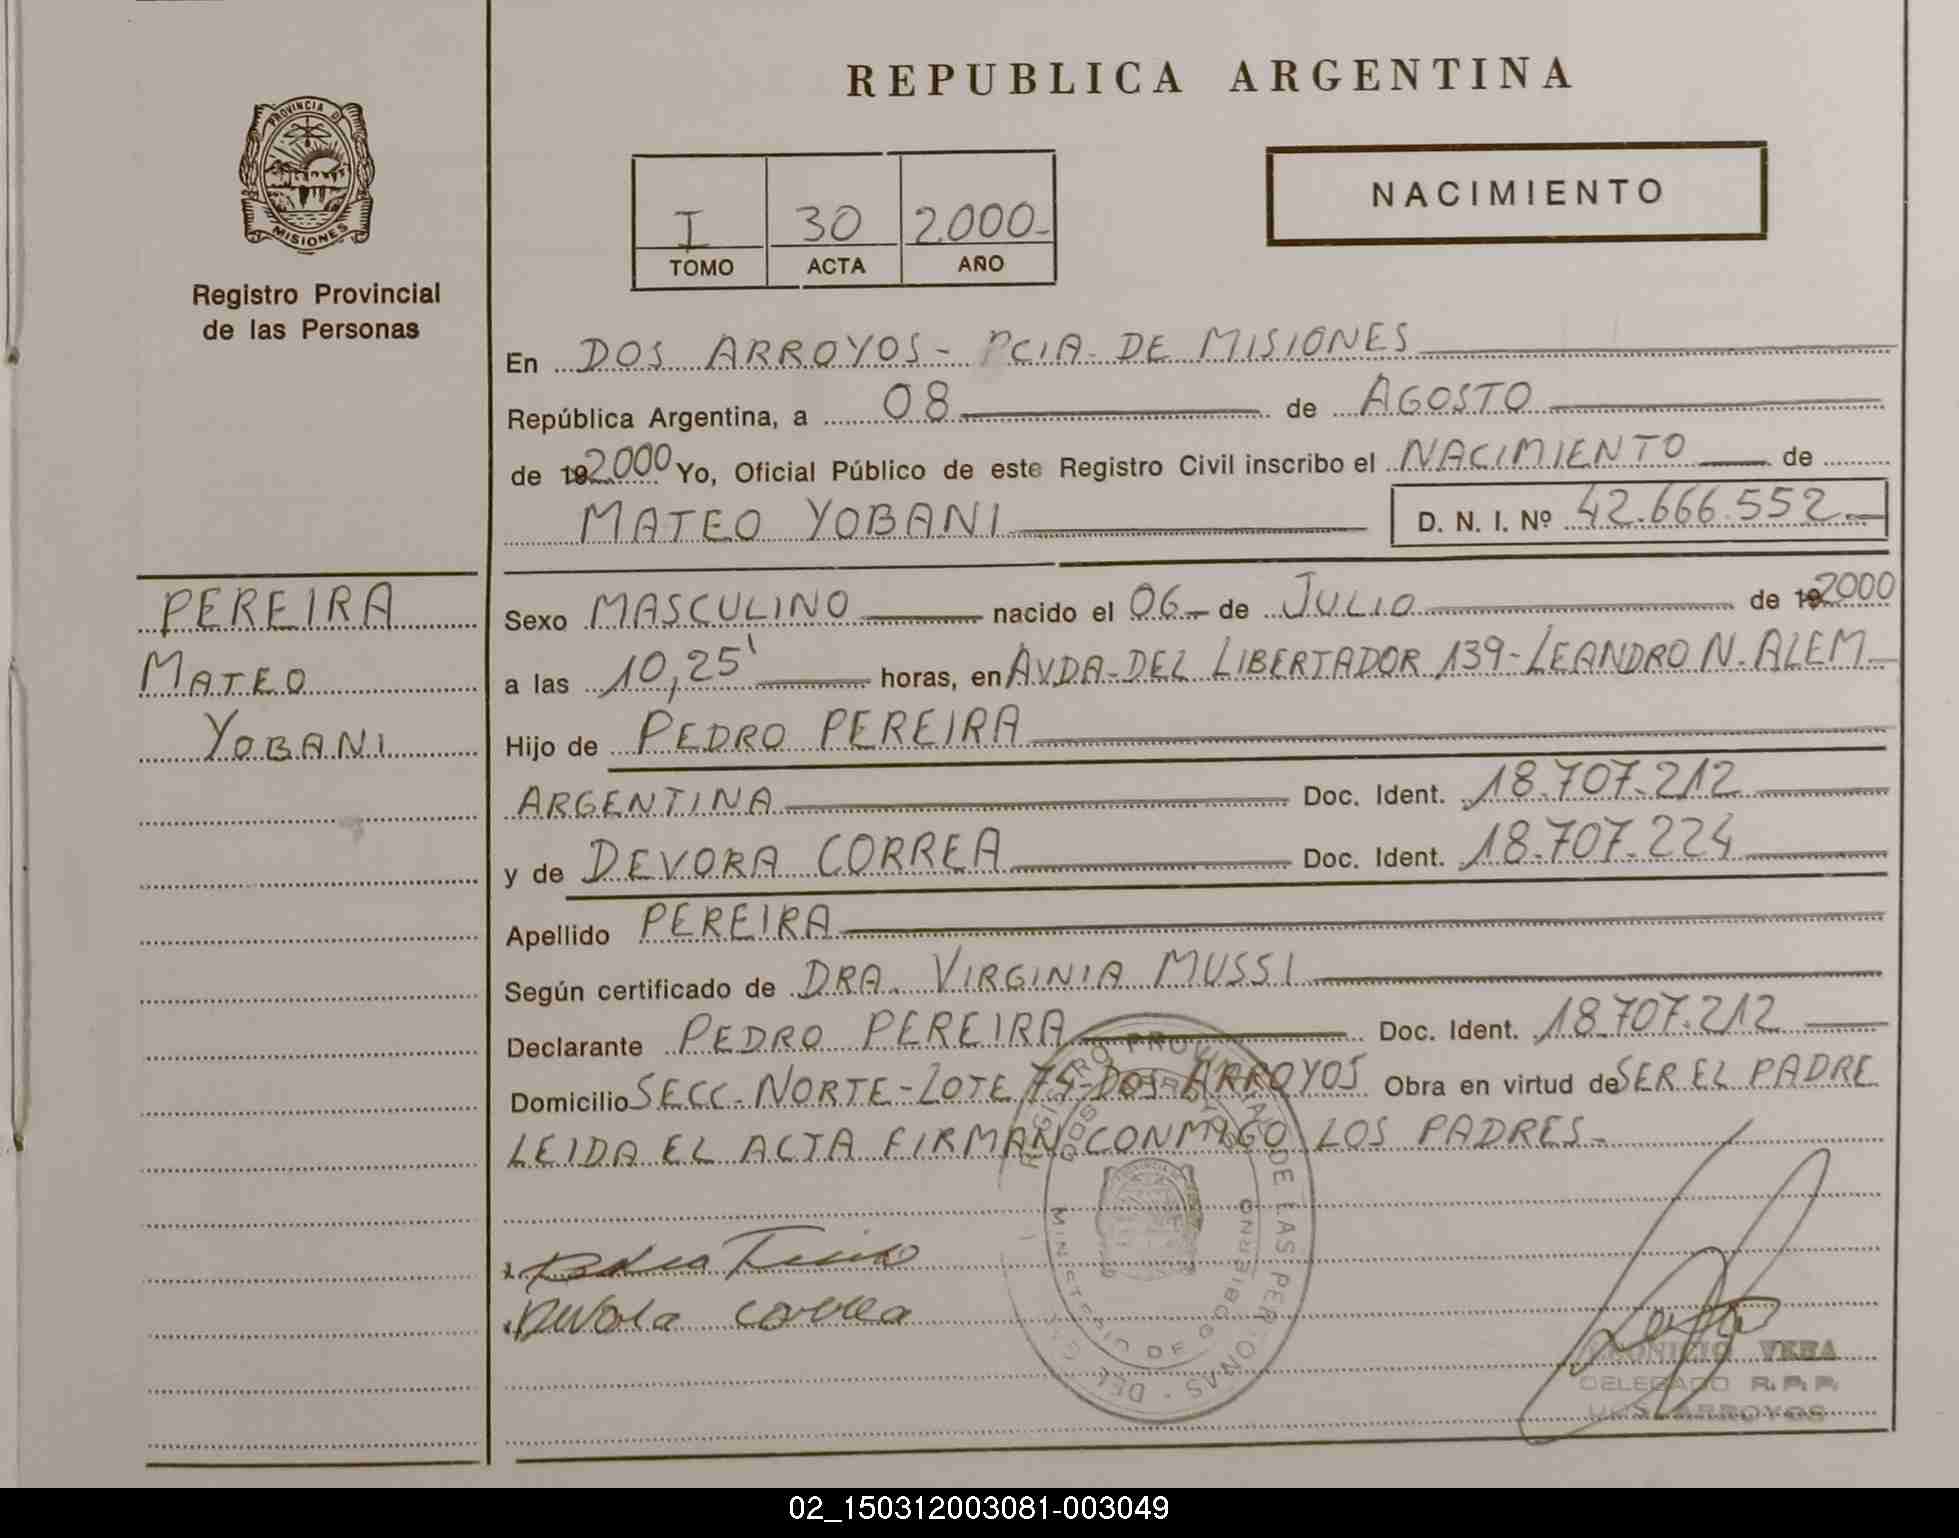 REPUBLICA ARGENTINA
PROVINCIA DE
MISIONES
Registro Provincial
de las Personas
I 30 2.000-
TOMO ACTA AÑO
NACIMIENTO
En DOS ARROYOS- PCIA- DE MISIONES
República Argentina, a 08 de AGOSTO
de 192000 Yo, Oficial Público de este Registro Civil inscribo el NACIMIENTO de
MATEO YOBANI D. N. I. Nº 42.666.552
PEREIRA
MATEO
YOBANI
Sexo MASCULINO nacido el 06 de JULIO de 192000
a las 10,25' horas, en AVDA-DEL LIBERTADOR 139-LEANDRO N. ALEM
Hijo de PEDRO PEREIRA
ARGENTINA Doc. Ident. 18.707.212
y de DEVORA CORREA Doc. Ident. 18.707.224
Apellido PEREIRA
Según certificado de DRA. VIRGINIA MUSSI
Declarante PEDRO PEREIRA Doc. Ident. 18.707.212
Domicilio SECC- NORTE-LOTE 75-DOS ARROYOS Obra en virtud de SER EL PADRE
LEIDA EL ACTA FIRMAN CONMIGO LOS PADRES-
REGISTRO PROVINCIAL DE LAS PERSONAS
DOS ARROYOS
MINISTERIO DE GOBIERNO
Devora Correa
VERA
DELEGADO R. P. P.
DOS ARROYOS
02_150312003081-003049